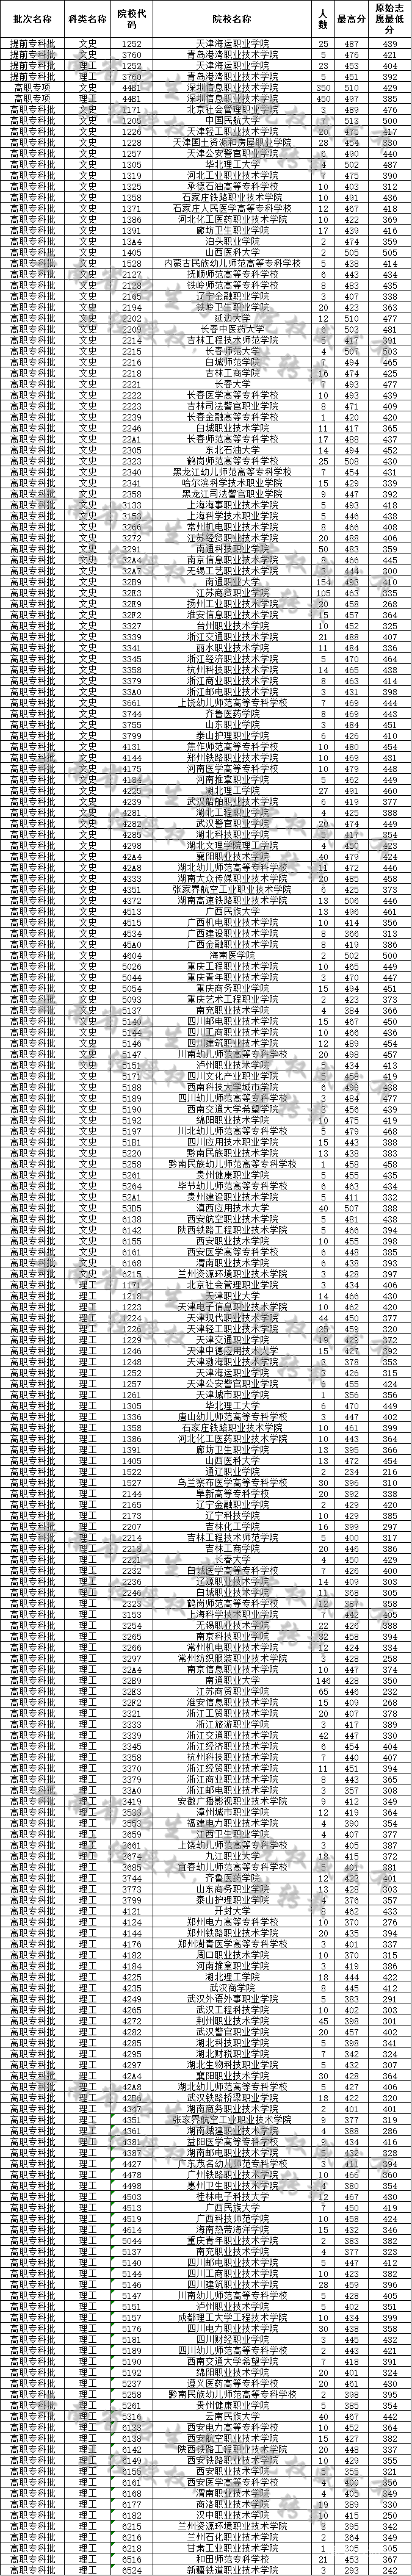 批次名称 科类名称 院校代码 院校名称 人数 最高分 原始志愿最低分
提前专科批 文史 1252 天津海运职业学院 25 487 439
提前专科批 文史 3760 青岛港湾职业技术学院 5 476 421
提前专科批 理工 1252 天津海运职业学院 23 453 404
提前专科批 理工 3760 青岛港湾职业技术学院 5 451 392
高职专项 文史 44B1 深圳信息职业技术学院 350 510 429
高职专项 理工 44B1 深圳信息职业技术学院 450 497 385
高职专科批 文史 1171 北京社会管理职业学院 3 489 476
高职专科批 文史 1205 中国民航大学 7 513 500
高职专科批 文史 1226 天津轻工职业技术学院 20 475 417
高职专科批 文史 1228 天津国土资源和房屋职业学院 28 454 330
高职专科批 文史 1257 天津公安警官职业学院 6 490 440
高职专科批 文史 1305 华北理工大学 4 502 487
高职专科批 文史 1319 河北工业职业技术学院 7 475 390
高职专科批 文史 1325 承德石油高等专科学校 10 403 312
高职专科批 文史 1358 石家庄铁路职业技术学院 10 491 436
高职专科批 文史 1371 石家庄人民医学高等专科学校 12 467 418
高职专科批 文史 1386 河北化工医药职业技术学院 10 422 369
高职专科批 文史 1391 廊坊卫生职业学院 17 439 416
高职专科批 文史 13A4 泊头职业学院 2 474 359
高职专科批 文史 1405 山西医科大学 2 505 505
高职专科批 文史 1528 内蒙古民族幼儿师范高等专科学校 5 438 414
高职专科批 文史 2127 抚顺师范高等专科学校 6 443 434
高职专科批 文史 2128 铁岭师范高等专科学校 8 483 435
高职专科批 文史 2165 辽宁金融职业学院 3 407 338
高职专科批 文史 2194 铁岭卫生职业学院 20 423 363
高职专科批 文史 2202 延边大学 12 510 477
高职专科批 文史 2209 长春中医药大学 6 503 481
高职专科批 文史 2214 吉林工程技术师范学院 5 417 391
高职专科批 文史 2215 长春师范大学 4 507 503
高职专科批 文史 2216 白城师范学院 7 494 465
高职专科批 文史 2218 吉林工商学院 16 474 425
高职专科批 文史 2221 长春大学 7 493 477
高职专科批 文史 2222 长春医学高等专科学校 10 493 439
高职专科批 文史 2223 吉林司法警官职业学院 8 471 409
高职专科批 文史 2239 长春金融高等专科学校 1 420 420
高职专科批 文史 2246 白城职业技术学院 11 417 365
高职专科批 文史 22A1 长春师范高等专科学校 17 488 437
高职专科批 文史 2305 东北石油大学 14 494 452
高职专科批 文史 2323 鹤岗师范高等专科学校 25 508 430
高职专科批 文史 2340 黑龙江幼儿师范高等专科学校 7 454 431
高职专科批 文史 2341 哈尔滨科学技术职业学院 15 429 339
高职专科批 文史 2358 黑龙江司法警官职业学院 9 447 392
高职专科批 文史 3133 上海海事职业技术学院 5 493 418
高职专科批 文史 3153 上海科学技术职业学院 5 446 438
高职专科批 文史 3266 常州机电职业技术学院 8 466 408
高职专科批 文史 3272 江苏经贸职业技术学院 20 488 406
高职专科批 文史 3291 南通科技职业学院 50 483 359
高职专科批 文史 32A4 南京信息职业技术学院 8 466 445
高职专科批 文史 32A7 无锡工艺职业技术学院 3 444 300
高职专科批 文史 32B9 南通职业大学 154 493 410
高职专科批 文史 32E3 江苏商贸职业学院 105 463 335
高职专科批 文史 32E9 扬州工业职业技术学院 20 458 268
高职专科批 文史 32F2 淮安信息职业技术学院 15 457 364
高职专科批 文史 3327 台州职业技术学院 10 452 325
高职专科批 文史 3339 浙江交通职业技术学院 21 488 407
高职专科批 文史 3341 丽水职业技术学院 11 484 336
高职专科批 文史 3345 浙江经济职业技术学院 5 470 464
高职专科批 文史 3358 杭州科技职业技术学院 14 465 438
高职专科批 文史 3379 浙江商业职业技术学院 8 463 414
高职专科批 文史 33A0 浙江邮电职业技术学院 3 431 398
高职专科批 文史 3661 上饶幼儿师范高等专科学校 7 469 444
高职专科批 文史 3744 齐鲁医药学院 8 469 443
高职专科批 文史 3755 山东职业学院 3 484 451
高职专科批 文史 3799 泰山护理职业学院 6 426 410
高职专科批 文史 4131 焦作师范高等专科学校 10 480 454
高职专科批 文史 4144 郑州铁路职业技术学院 10 469 431
高职专科批 文史 4175 河南医学高等专科学校 10 479 448
高职专科批 文史 4184 河南推拿职业学院 5 462 449
高职专科批 文史 4225 湖北理工学院 27 491 460
高职专科批 文史 4239 武汉船舶职业技术学院 6 419 377
高职专科批 文史 4281 湖北工程职业学院 4 425 388
高职专科批 文史 4282 武汉警官职业学院 20 474 449
高职专科批 文史 4285 湖北科技职业学院 5 417 354
高职专科批 文史 4298 湖北文理学院理工学院 4 450 423
高职专科批 文史 42A4 襄阳职业技术学院 40 479 424
高职专科批 文史 42A8 湖北幼儿师范高等专科学校 11 472 446
高职专科批 文史 4333 湖南大众传媒职业技术学院 20 485 458
高职专科批 文史 4351 张家界航空工业职业技术学院 6 425 373
高职专科批 文史 4372 湖南高速铁路职业技术学院 13 506 446
高职专科批 文史 4513 广西民族大学 13 496 461
高职专科批 文史 4515 广西机电职业技术学院 10 414 356
高职专科批 文史 4534 广西建设职业技术学院 8 366 313
高职专科批 文史 45A0 广西金融职业技术学院 8 419 386
高职专科批 文史 4604 海南医学院 2 502 500
高职专科批 文史 5026 重庆工程职业技术学院 10 465 449
高职专科批 文史 5044 重庆青年职业技术学院 3 470 447
高职专科批 文史 5054 重庆商务职业学院 15 494 451
高职专科批 文史 5093 重庆艺术工程职业学院 2 423 373
高职专科批 文史 5137 南充职业技术学院 4 384 366
高职专科批 文史 5140 四川邮电职业技术学院 15 467 450
高职专科批 文史 5144 四川工商职业技术学院 10 466 436
高职专科批 文史 5146 四川建筑职业技术学院 12 489 454
高职专科批 文史 5147 川南幼儿师范高等专科学校 20 498 457
高职专科批 文史 5151 泸州职业技术学院 5 434 413
高职专科批 文史 5171 四川文化产业职业学院 5 458 419
高职专科批 文史 5188 西南科技大学城市学院 6 499 438
高职专科批 文史 5189 四川幼儿师范高等专科学校 3 484 477
高职专科批 文史 5190 西南交通大学希望学院 3 456 439
高职专科批 文史 5192 绵阳职业技术学院 10 475 419
高职专科批 文史 5197 川北幼儿师范高等专科学校 5 479 468
高职专科批 文史 51B1 四川应用技术职业学院 15 443 388
高职专科批 文史 5220 黔南民族职业技术学院 13 438 383
高职专科批 文史 5258 黔南民族幼儿师范高等专科学校 1 458 458
高职专科批 文史 5261 贵州健康职业学院 5 455 435
高职专科批 文史 5264 毕节幼儿师范高等专科学校 6 463 434
高职专科批 文史 52A1 贵州建设职业技术学院 5 411 332
高职专科批 文史 53D5 滇西应用技术大学 40 507 388
高职专科批 文史 6138 西安航空职业技术学院 5 481 438
高职专科批 文史 6142 陕西铁路工程职业技术学院 5 466 394
高职专科批 文史 6155 西安职业技术学院 10 455 398
高职专科批 文史 6161 西安医学高等专科学校 6 448 385
高职专科批 文史 6168 渭南职业技术学院 6 438 393
高职专科批 文史 6215 兰州资源环境职业技术学院 3 428 397
高职专科批 理工 1171 北京社会管理职业学院 3 434 406
高职专科批 理工 1218 天津职业大学 14 466 430
高职专科批 理工 1223 天津电子信息职业技术学院 10 462 420
高职专科批 理工 1224 天津现代职业技术学院 44 450 377
高职专科批 理工 1226 天津轻工职业技术学院 39 459 320
高职专科批 理工 1229 天津交通职业学院 19 429 372
高职专科批 理工 1246 天津中德应用技术大学 15 427 392
高职专科批 理工 1248 天津渤海职业技术学院 3 378 353
高职专科批 理工 1252 天津海运职业学院 3 426 315
高职专科批 理工 1257 天津公安警官职业学院 6 455 424
高职专科批 理工 1261 天津城市职业学院 1 356 356
高职专科批 理工 1305 华北理工大学 6 470 449
高职专科批 理工 1336 唐山幼儿师范高等专科学校 3 447 402
高职专科批 理工 1358 石家庄铁路职业技术学院 10 461 399
高职专科批 理工 1386 河北化工医药职业技术学院 10 443 364
高职专科批 理工 1391 廊坊卫生职业学院 13 395 366
高职专科批 理工 1405 山西医科大学 13 472 454
高职专科批 理工 1522 通辽职业学院 2 234 216
高职专科批 理工 1527 乌兰察布医学高等专科学校 30 396 310
高职专科批 理工 2144 阜新高等专科学校 20 392 338
高职专科批 理工 2165 辽宁金融职业学院 2 429 420
高职专科批 理工 2173 辽宁科技学院 10 429 385
高职专科批 理工 2207 吉林化工学院 16 399 297
高职专科批 理工 2214 吉林工程技术师范学院 5 400 317
高职专科批 理工 2218 吉林工商学院 20 446 386
高职专科批 理工 2221 长春大学 4 450 429
高职专科批 理工 2232 白城医学高等专科学校 7 426 400
高职专科批 理工 2236 辽源职业技术学院 14 409 303
高职专科批 理工 2246 白城职业技术学院 11 368 305
高职专科批 理工 2323 鹤岗师范高等专科学校 12 387 358
高职专科批 理工 3153 上海科学技术职业学院 7 442 405
高职专科批 理工 3254 无锡职业技术学院 22 426 388
高职专科批 理工 3265 南京科技职业学院 32 458 399
高职专科批 理工 3266 常州机电职业技术学院 12 424 334
高职专科批 理工 3297 常州纺织服装职业技术学院 3 428 258
高职专科批 理工 32A4 南京信息职业技术学院 10 447 374
高职专科批 理工 32B9 南通职业大学 146 428 350
高职专科批 理工 32E3 江苏商贸职业学院 65 446 232
高职专科批 理工 32F2 淮安信息职业技术学院 15 409 268
高职专科批 理工 3321 浙江工贸职业技术学院 20 427 378
高职专科批 理工 3333 浙江旅游职业学院 3 417 389
高职专科批 理工 3339 浙江交通职业技术学院 42 447 330
高职专科批 理工 3345 浙江经济职业技术学院 6 454 404
高职专科批 理工 3358 杭州科技职业技术学院 7 440 407
高职专科批 理工 3370 浙江经贸职业技术学院 11 451 394
高职专科批 理工 3379 浙江商业职业技术学院 8 443 365
高职专科批 理工 33A0 浙江邮电职业技术学院 3 357 308
高职专科批 理工 3419 安徽广播影视职业技术学院 9 412 349
高职专科批 理工 3533 漳州城市职业学院 12 419 364
高职专科批 理工 3553 福建电力职业技术学院 4 390 354
高职专科批 理工 3659 江西卫生职业学院 4 407 377
高职专科批 理工 3661 上饶幼儿师范高等专科学校 3 405 387
高职专科批 理工 3674 九江职业大学 18 415 372
高职专科批 理工 3685 宜春幼儿师范高等专科学校 5 401 381
高职专科批 理工 3744 齐鲁医药学院 12 423 401
高职专科批 理工 3773 山东商务职业学院 13 428 303
高职专科批 理工 3799 泰山护理职业学院 4 376 357
高职专科批 理工 4121 开封大学 8 462 433
高职专科批 理工 4124 郑州电力高等专科学校 10 370 276
高职专科批 理工 4144 郑州铁路职业技术学院 20 435 394
高职专科批 理工 4176 郑州澍青医学高等专科学校 3 401 337
高职专科批 理工 4182 周口职业技术学院 10 370 315
高职专科批 理工 4184 河南推拿职业学院 3 419 386
高职专科批 理工 4225 湖北理工学院 18 444 422
高职专科批 理工 4235 武汉商学院 8 445 412
高职专科批 理工 4249 武汉外语外事职业学院 5 385 291
高职专科批 理工 4265 武汉工程科技学院 10 402 303
高职专科批 理工 4272 荆州职业技术学院 45 398 301
高职专科批 理工 4282 武汉警官职业学院 20 457 402
高职专科批 理工 4285 湖北科技职业学院 3 398 341
高职专科批 理工 4295 湖北财税职业学院 7 342 324
高职专科批 理工 4297 湖北生物科技职业学院 5 432 307
高职专科批 理工 42A4 襄阳职业技术学院 30 428 364
高职专科批 理工 42A8 湖北幼儿师范高等专科学校 5 427 406
高职专科批 理工 42B6 武汉铁路桥梁职业学院 18 422 320
高职专科批 理工 4347 湖南商务职业技术学院 2 401 401
高职专科批 理工 4351 张家界航空工业职业技术学院 9 377 319
高职专科批 理工 4361 湖南城建职业技术学院 4 388 286
高职专科批 理工 4381 益阳医学高等专科学校 9 434 416
高职专科批 理工 4387 湖南邮电职业技术学院 5 432 328
高职专科批 理工 4427 广东茂名幼儿师范专科学校 3 411 394
高职专科批 理工 4478 广州铁路职业技术学院 10 466 360
高职专科批 理工 4498 惠州卫生职业技术学院 4 380 354
高职专科批 理工 4503 桂林电子科技大学 12 467 430
高职专科批 理工 4513 广西民族大学 7 450 419
高职专科批 理工 4519 广西科技师范学院 10 458 424
高职专科批 理工 4614 海南热带海洋学院 15 432 346
高职专科批 理工 5044 重庆青年职业技术学院 2 383 382
高职专科批 理工 5137 南充职业技术学院 4 377 323
高职专科批 理工 5140 四川邮电职业技术学院 5 447 412
高职专科批 理工 5144 四川工商职业技术学院 10 423 382
高职专科批 理工 5146 四川建筑职业技术学院 28 459 396
高职专科批 理工 5147 川南幼儿师范高等专科学校 5 428 405
高职专科批 理工 5151 泸州职业技术学院 5 402 351
高职专科批 理工 5157 成都理工大学工程技术学院 10 434 399
高职专科批 理工 5176 四川电力职业技术学院 30 438 358
高职专科批 理工 5181 四川财经职业学院 3 445 432
高职专科批 理工 5189 四川幼儿师范高等专科学校 2 443 421
高职专科批 理工 5190 西南交通大学希望学院 7 418 391
高职专科批 理工 5192 绵阳职业技术学院 20 401 324
高职专科批 理工 5237 遵义医药高等专科学校 20 461 430
高职专科批 理工 5258 黔南民族幼儿师范高等专科学校 2 398 395
高职专科批 理工 5261 贵州健康职业学院 5 385 354
高职专科批 理工 5316 云南民族大学 40 467 442
高职专科批 理工 6133 西安电力高等专科学校 10 452 364
高职专科批 理工 6138 西安航空职业技术学院 15 427 382
高职专科批 理工 6142 陕西铁路工程职业技术学院 20 448 337
高职专科批 理工 6149 西安铁路职业技术学院 10 429 355
高职专科批 理工 6155 西安职业技术学院 5 355 321
高职专科批 理工 6161 西安医学高等专科学校 4 400 356
高职专科批 理工 6168 渭南职业技术学院 4 405 349
高职专科批 理工 6177 商洛职业技术学院 19 389 330
高职专科批 理工 6182 汉中职业技术学院 10 415 250
高职专科批 理工 6215 兰州资源环境职业技术学院 3 395 342
高职专科批 理工 6216 兰州石化职业技术学院 2 364 349
高职专科批 理工 6218 甘肃工业职业技术学院 1 305 305
高职专科批 理工 6516 和田师范专科学校 21 453 367
高职专科批 理工 6524 新疆铁道职业技术学院 3 293 242